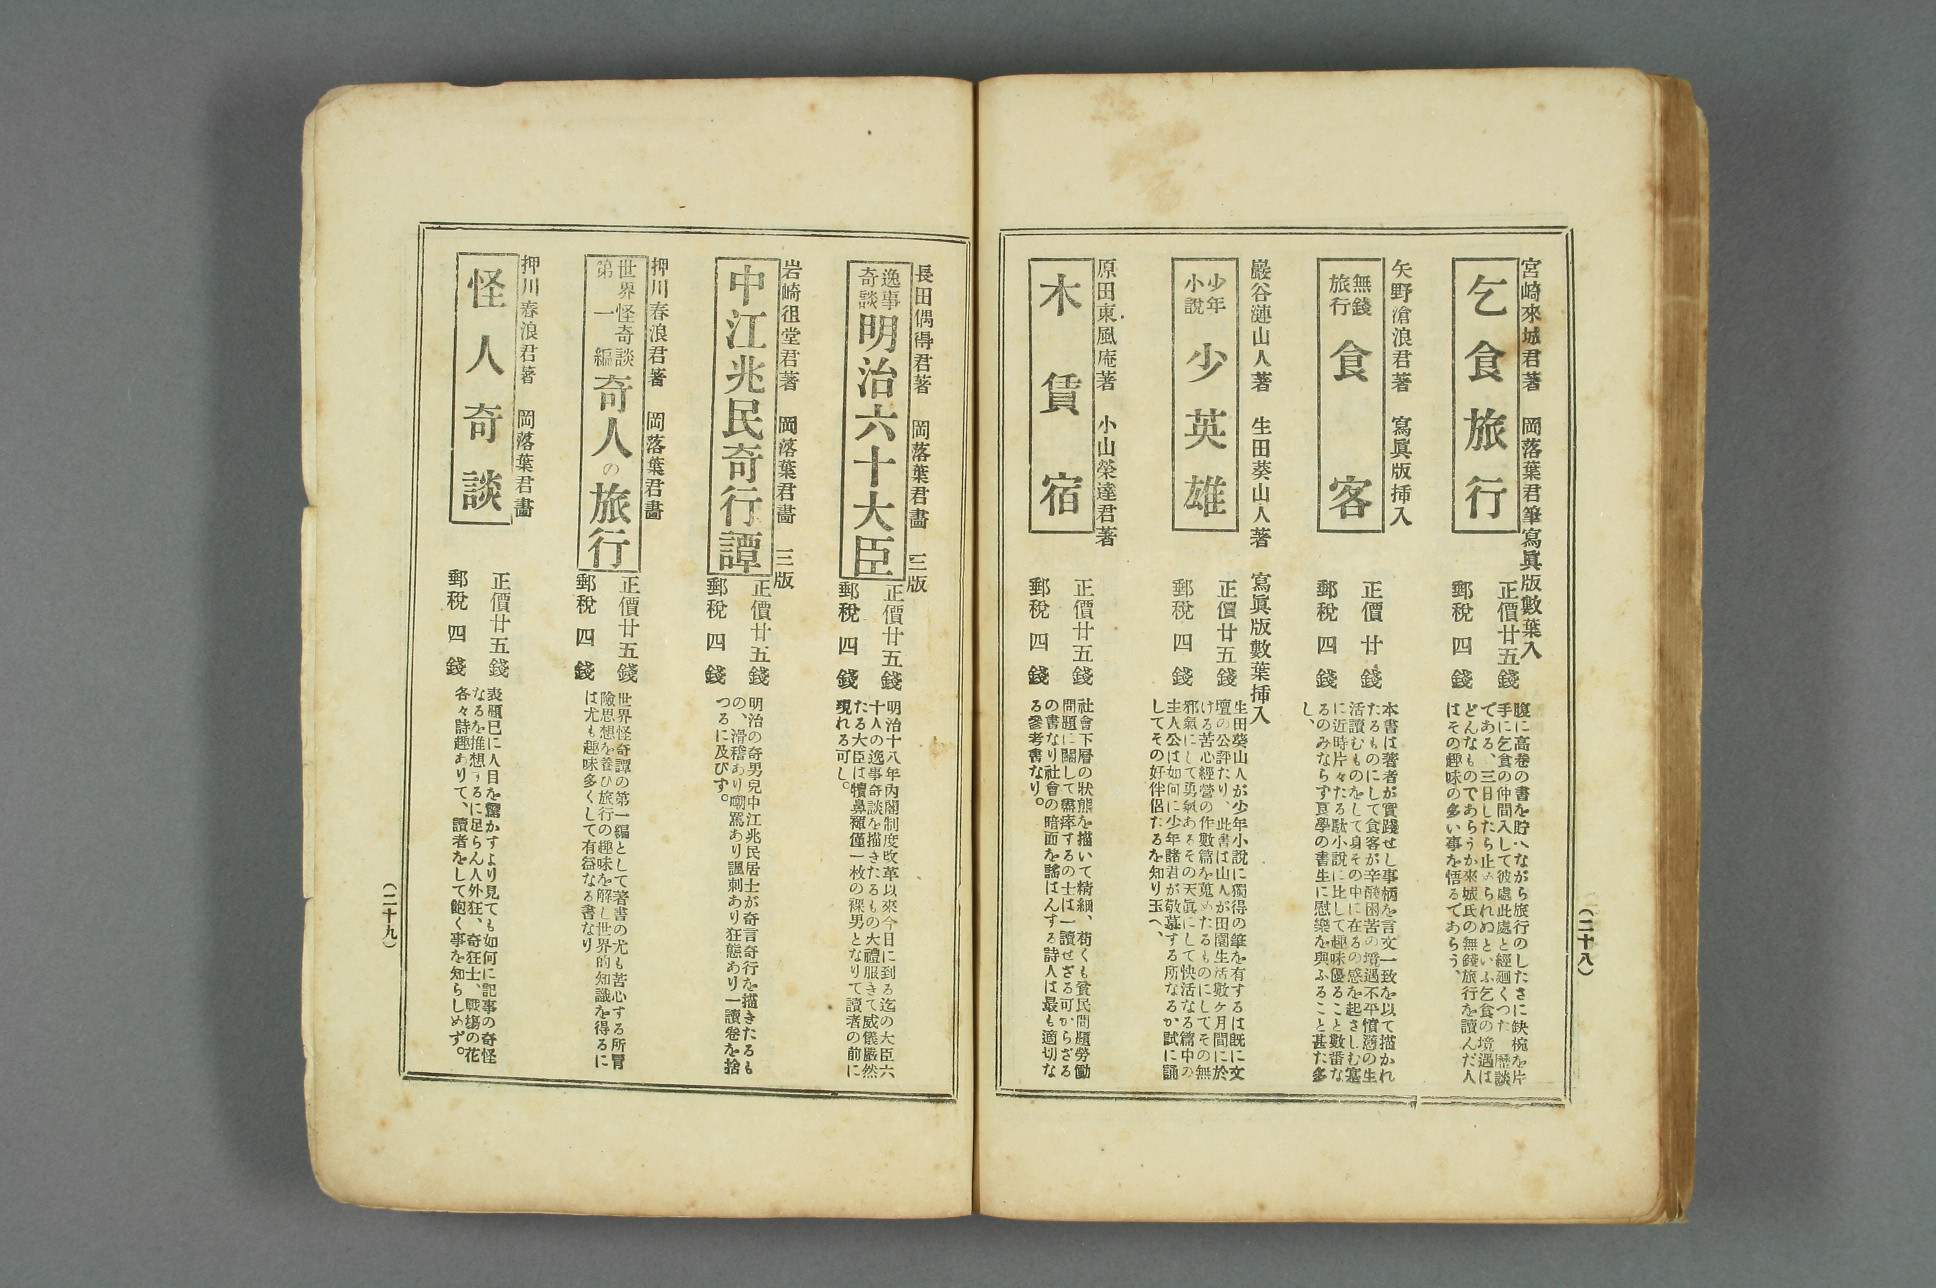 宮崎來城君著 岡落葉君筆寫眞版數葉入
乞食旅行
正價廿五錢
郵稅四錢
腹に高卷の書を貯へながら旅行のしたさに缺椀を片
手に乞食の仲間入して彼處此處と經廻くつた歷談
である、三日したら止められぬといふ乞食の境遇は
どんなものであらうか來城氏の無錢旅行を讀んだ人
はその趣味の多い事を悟るであらう、
矢野滄浪君著 寫眞版挿入
無錢旅行 食客
正價廿錢
郵稅四錢
本書は著者が實踐せし事柄を言文一致を以て描かれ
たるものにして食客が辛酸困苦の境遇不平憤懣の生
活讀むものをして身その中に在るの感を起さしむ蓋
に近時片々たる駄小說に比して趣味優ること數番な
るのみならず良學の書生に慰樂を與ふること甚だ多
し、
巖谷漣山人著 生田葵山人著 寫眞版數葉挿入
少年小說 少英雄
正價廿五錢
郵稅四錢
生田葵山人が少年小說に獨得の筆を有するは既に文
壇の公評たり、此書は山人が田園生活數ヶ月間に於
ける苦心經營の作數篇を蒐めたるものにしてその無
邪氣にして勇氣あるその天眞にして快活なる篇中の
主人公は如何に少年諸君が敬慕する所なるか試に誦
してその好伴侶たるを知り玉へ、
原田東風庵著 小山榮達君著
木賃宿
正價廿五錢
郵稅四錢
社會下層の狀態を描いて精細、苟くも貧民問題勞働
問題に關して盡瘁するの士は一讀せざる可からざる
の書なり社會の暗面を謠はんする詩人は最も適切な
る參考書なり。
(二十八)
長田偶得君著 岡落葉君畵 三版
逸事奇談 明治六十大臣
正價廿五錢
郵稅四錢
明治十八年內閣制度改革以來今日に到る迄の大臣六
十人の逸事奇談を描きたるもの大禮服きて威儀嚴然
たる大臣は犢鼻褌僅一枚の裸男となりて讀者の前に
現れる可し。
岩崎徂堂君著 岡落葉君畵 三版
中江兆民奇行譚
正價廿五錢
郵稅四錢
明治の奇男兒中江兆民居士が奇言奇行を描きたるも
の、滑稽あり嘲罵あり諷刺あり狂態あり一讀卷を捨
つるに及びず。
押川春浪君著 岡落葉君畵
世界怪奇談第一編 奇人の旅行
正價廿五錢
郵稅四錢
世界怪奇譚の第一編として著書の尤も苦心する所冒
險思想を養ひ旅行の趣味を解し世界的知識を得るに
は尤も趣味多くして有益なる書なり
押川春浪君著 岡落葉君畵
怪人奇談
正價廿五錢
郵稅四錢
表題已に人目を驚かすより見ても如何に記事の奇怪
なるを推想するに足らん人外狂、奇狂士、戰塲の花
各々詩趣ありて、讀者をして飽く事を知らしめず。
(二十九)